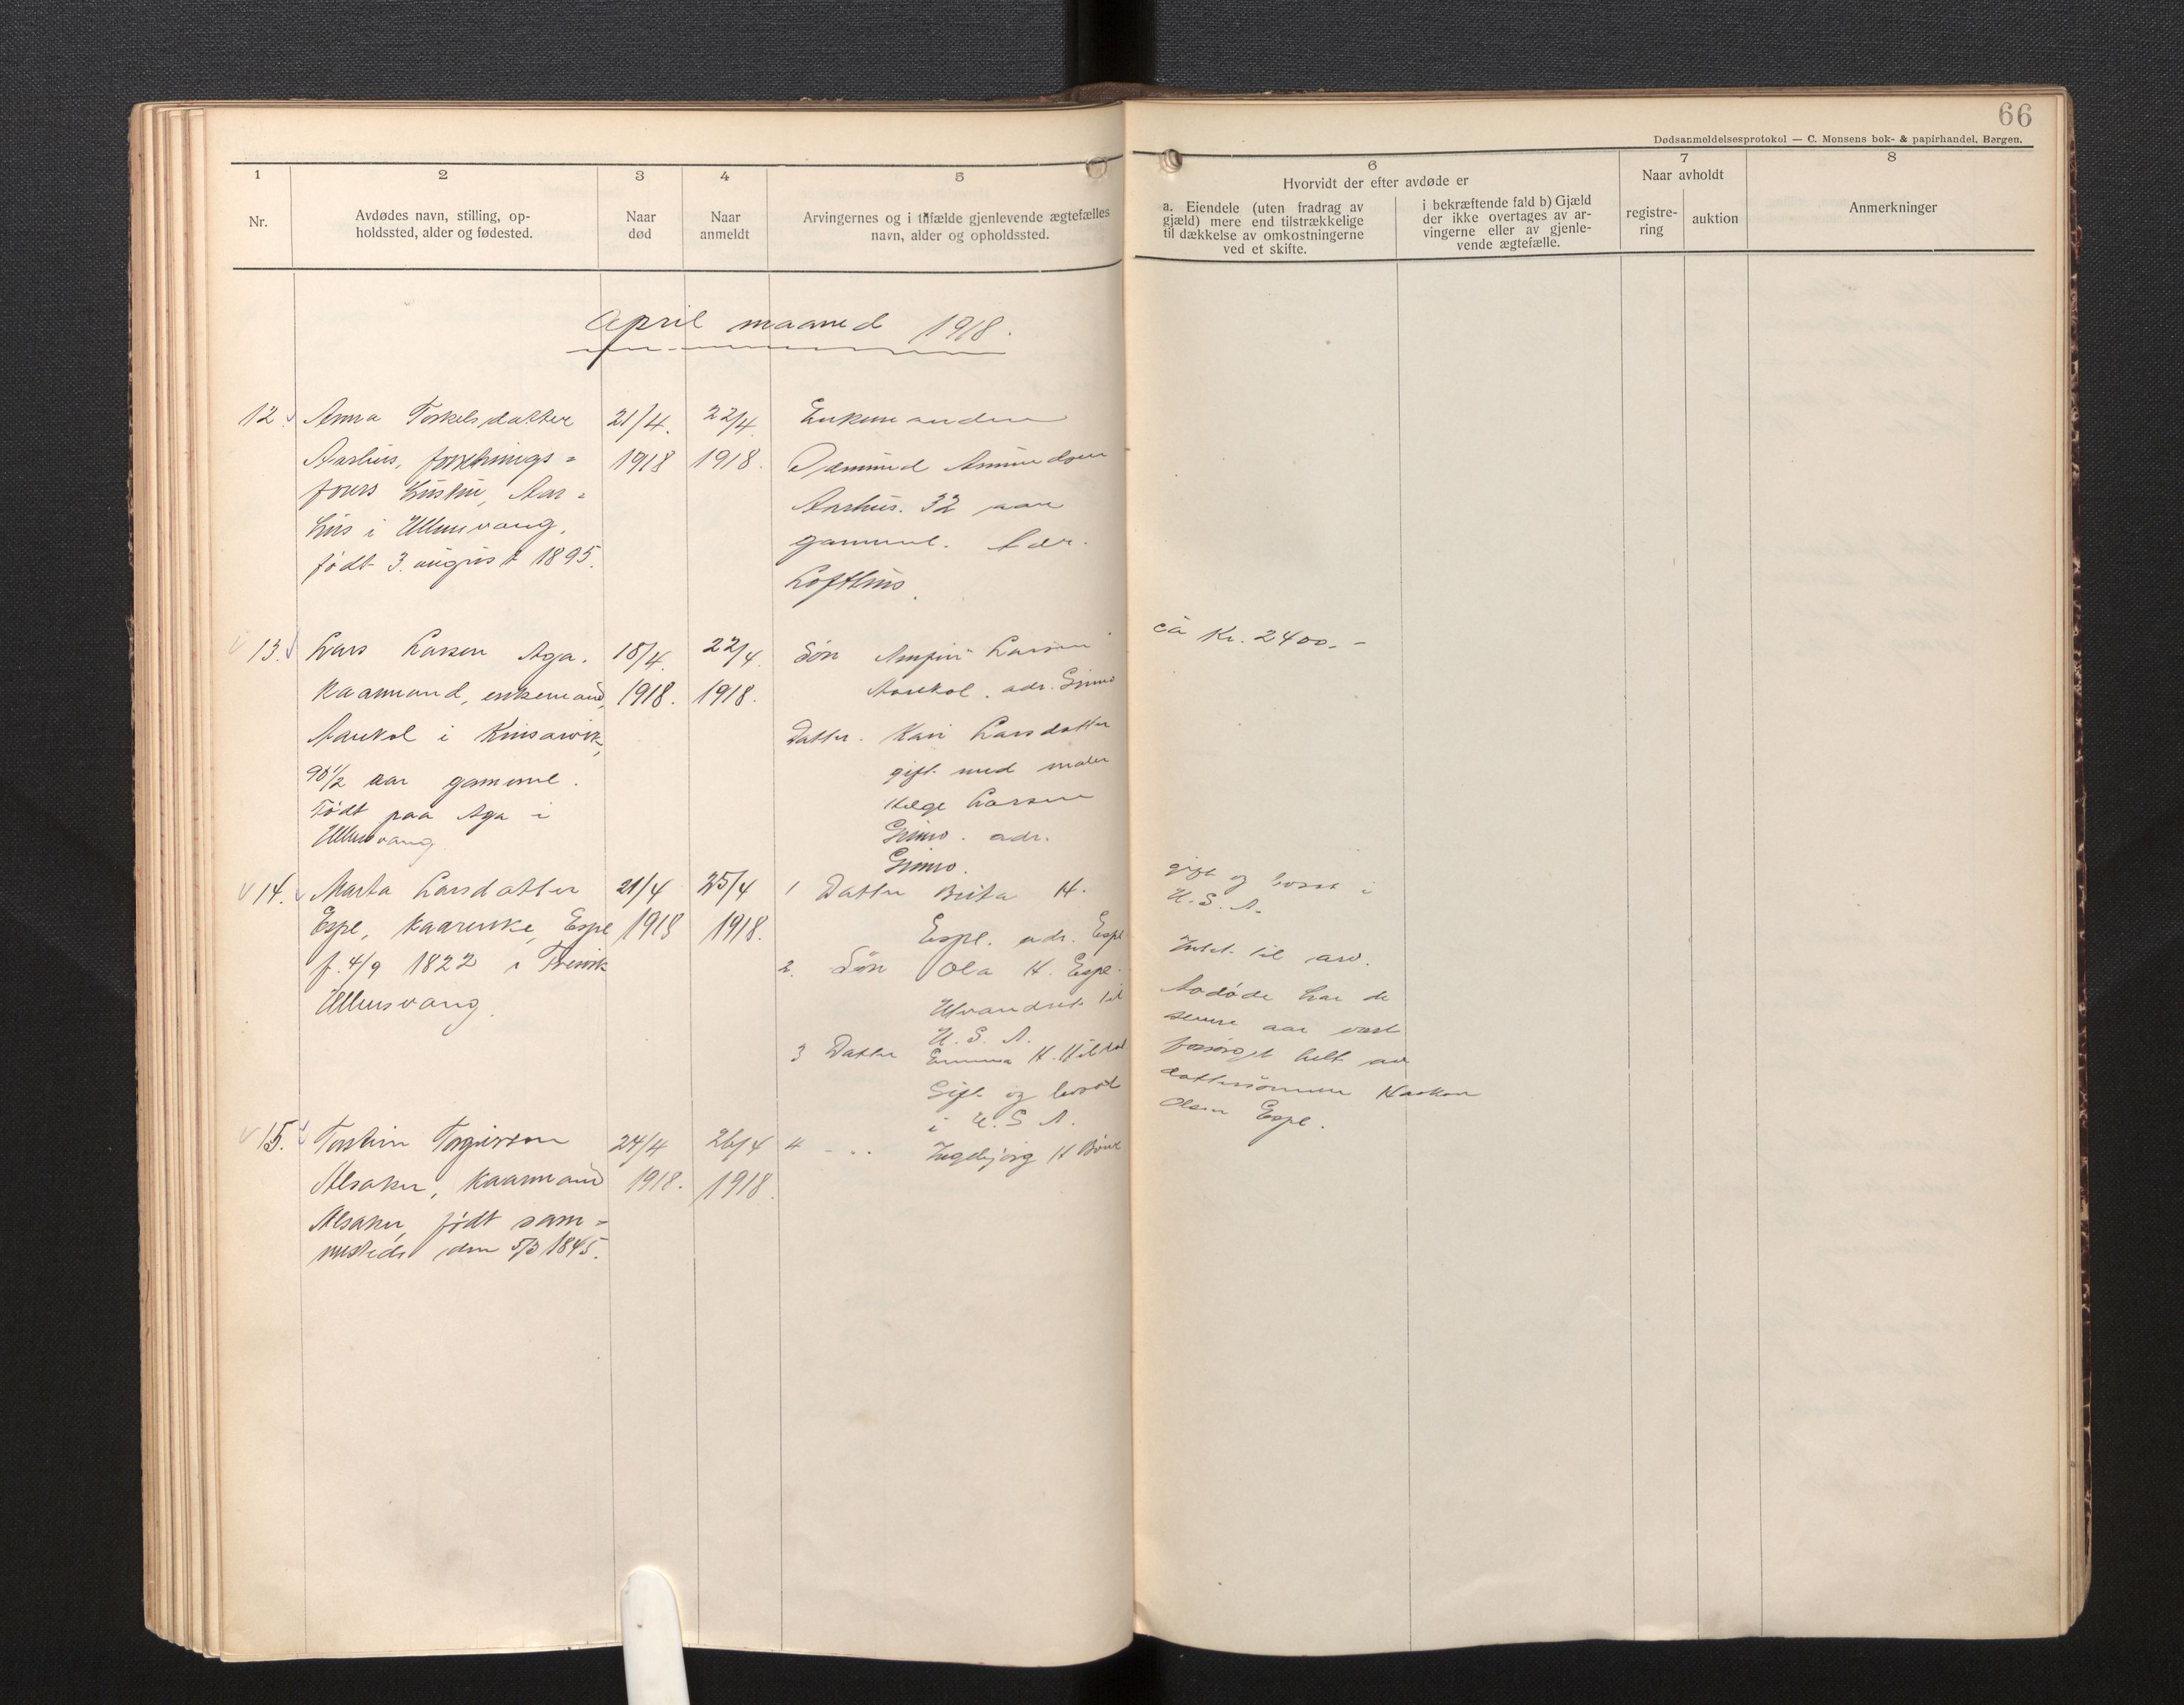 66
Dødsanmeldelsesprotokol — C. Monsens bok- & papirhandel, Bergen.
1
2
3
4
5
6
7
8
Nr.
Avdødes navn, stilling, op-
holdssted, alder og fødested.
Naar
død
Naar
anmeldt
Arvingernes og i tilfælde gjenlevende ægtefælles
navn, alder og opholdssted.
Hvorvidt der efter avdøde er
a. Eiendele (uten fradrag av
gjæld) mere end tilstrækkelige
til dækkelse av omkostningerne
ved et skifte.
i bekræftende fald b) Gjæld
der ikke overtages av ar-
vingerne eller av gjenle-
vende ægtefælle.
Naar avholdt
registre-
ring
auktion
Anmerkninger
April maaned 1918.
12.
Anna Torkelsdatter
Aarhus, forretnings=
førers hustru, Aar=
hus i Ullensvang,
født 3. august 1895.
21/4.
1918
22/4.
1918.
Enkemanden
Aamund Amundsen
Aarhus. 32 aar
gammel. Adr.
Lofthus.
13.
Lars Larsen Aga.
Kaarmand, enkemand,
i Kinsarvik,
90 1/2 aar gammel.
Født paa Aga i
Ullensvang
18/4.
1918.
22/4.
1918.
Søn Larsen
adr. Grimo
Datter. Kari Larsdatter
gift med maler
Helge Larsen
Grimo. adr.
Grimo.
ca Kr. 2400.-
14.
Marta Larsdatter
Espe, kaarenke, Espe
f. 4/9 1822 i
Ullensvang.
21/4
1918
25/4
1918.
1 Datter Brita H.
Espe. adr. Espe
2. Søn Ola H. Espe.
Utvandret til
U. S. A.
3 Datter Emma H.
Gift og bosat
i U. S. A.
4 - .. Ingebjørg H
gift og bosat i
U. S. A.
Intet til arv.
Avdøde har de
senere aar vært
forsørget helt av
dattersønnen Haakon
Olsen Espe.
15.
Torstein Torgeirsson
Alsaker, kaarmand
Alsaker, født sam=
mesteds den 5/3 1845.
24/4
1918.
26/4
1918.